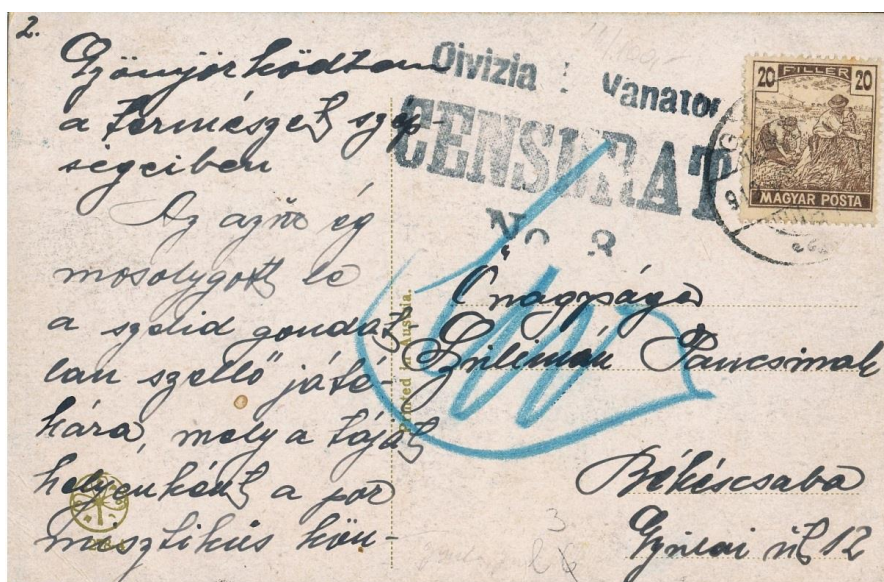 2.
Gyönyörködtem
a természet szép-
ségeiben
Az azur ég
mosolygott le
a szelid gondat
lan szellő játé-
kára, mely a tájat
helyenként a por
misztikus kön-
Divizia Vanatori
CENSURAT
No 8
20 FILLER 20
MAGYAR POSTA
Printed in Austria.
Őnagysága
Pancsinak
Békéscsaba
Gyulai út 12
3